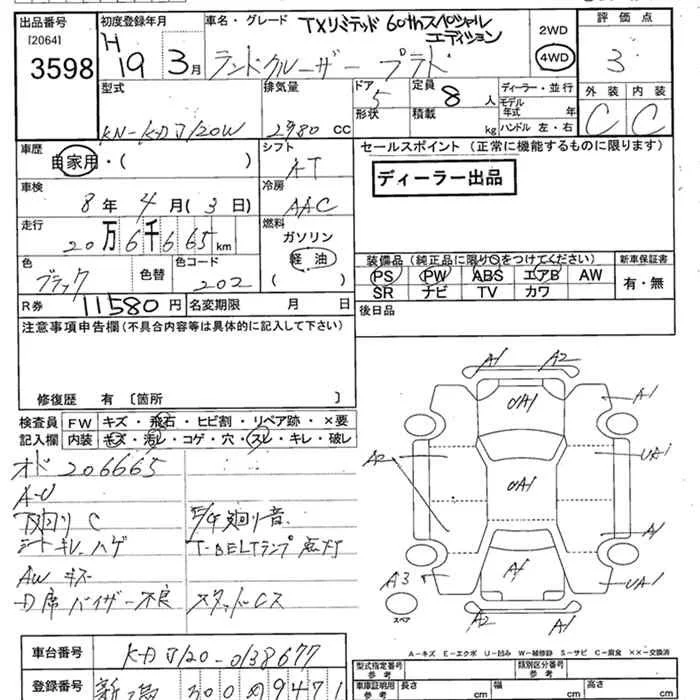 出品番号
[2064]
3598
初度登録年月
H
19 3月
車名・グレード TXリミテッド 60thスペシャル
エディション
ランドクルーザー プラド
2WD
4WD
評価点
3
外装 内装
C C
型式
KN-KDJ120W
排気量
2980 CC
ドア
5
形状
定員
8 人
積載
kg
ディーラー・並行
モデル
年式 年
ハンドル 左・右
車歴
自家用・( )
シフト
AT
車検
8年 4月(3日)
冷房
AAC
走行
20万6千665km
燃料
ガソリン
軽油
( )
色
ブラック
色替
色コード
202
R券 11580円
名変期限 月 日
セールスポイント(正常に機能するものに限ります)
ディーラー出品
装備品(純正品に限り○をつけてください)
PS PW ABS エアB AW
SR ナビ TV カワ
新車保証書
有・無
後日品
注意事項申告欄(不具合内容等は具体的に記入して下さい)
修復歴 有〔箇所 〕
検査員
記入欄
FW キズ・飛石・ヒビ割・リペア跡・×要
内装 キズ・汚レ・コゲ・穴・スレ・キレ・破レ
オド 206665
A-U
下廻り C
シートキレ、ハゲ
AW キズ
D席バイザー不良
E/G廻り音
T-BELTランプ点灯
スタッドCS
A1 A2
UA1
A1
A2
UA1
UA1
A1
A1
A3
UA1
A2 A1
スペア
A-キズ E-エクボ U-凹み W-補修跡 S-サビ C-腐食 ××-交換済
車台番号 KDJ120-0138677
登録番号 新潟 300 の 9471
型式指定番号
参考
類別区分番号
参考
車庫証明用
参考
長さ cm
幅 cm
高さ cm